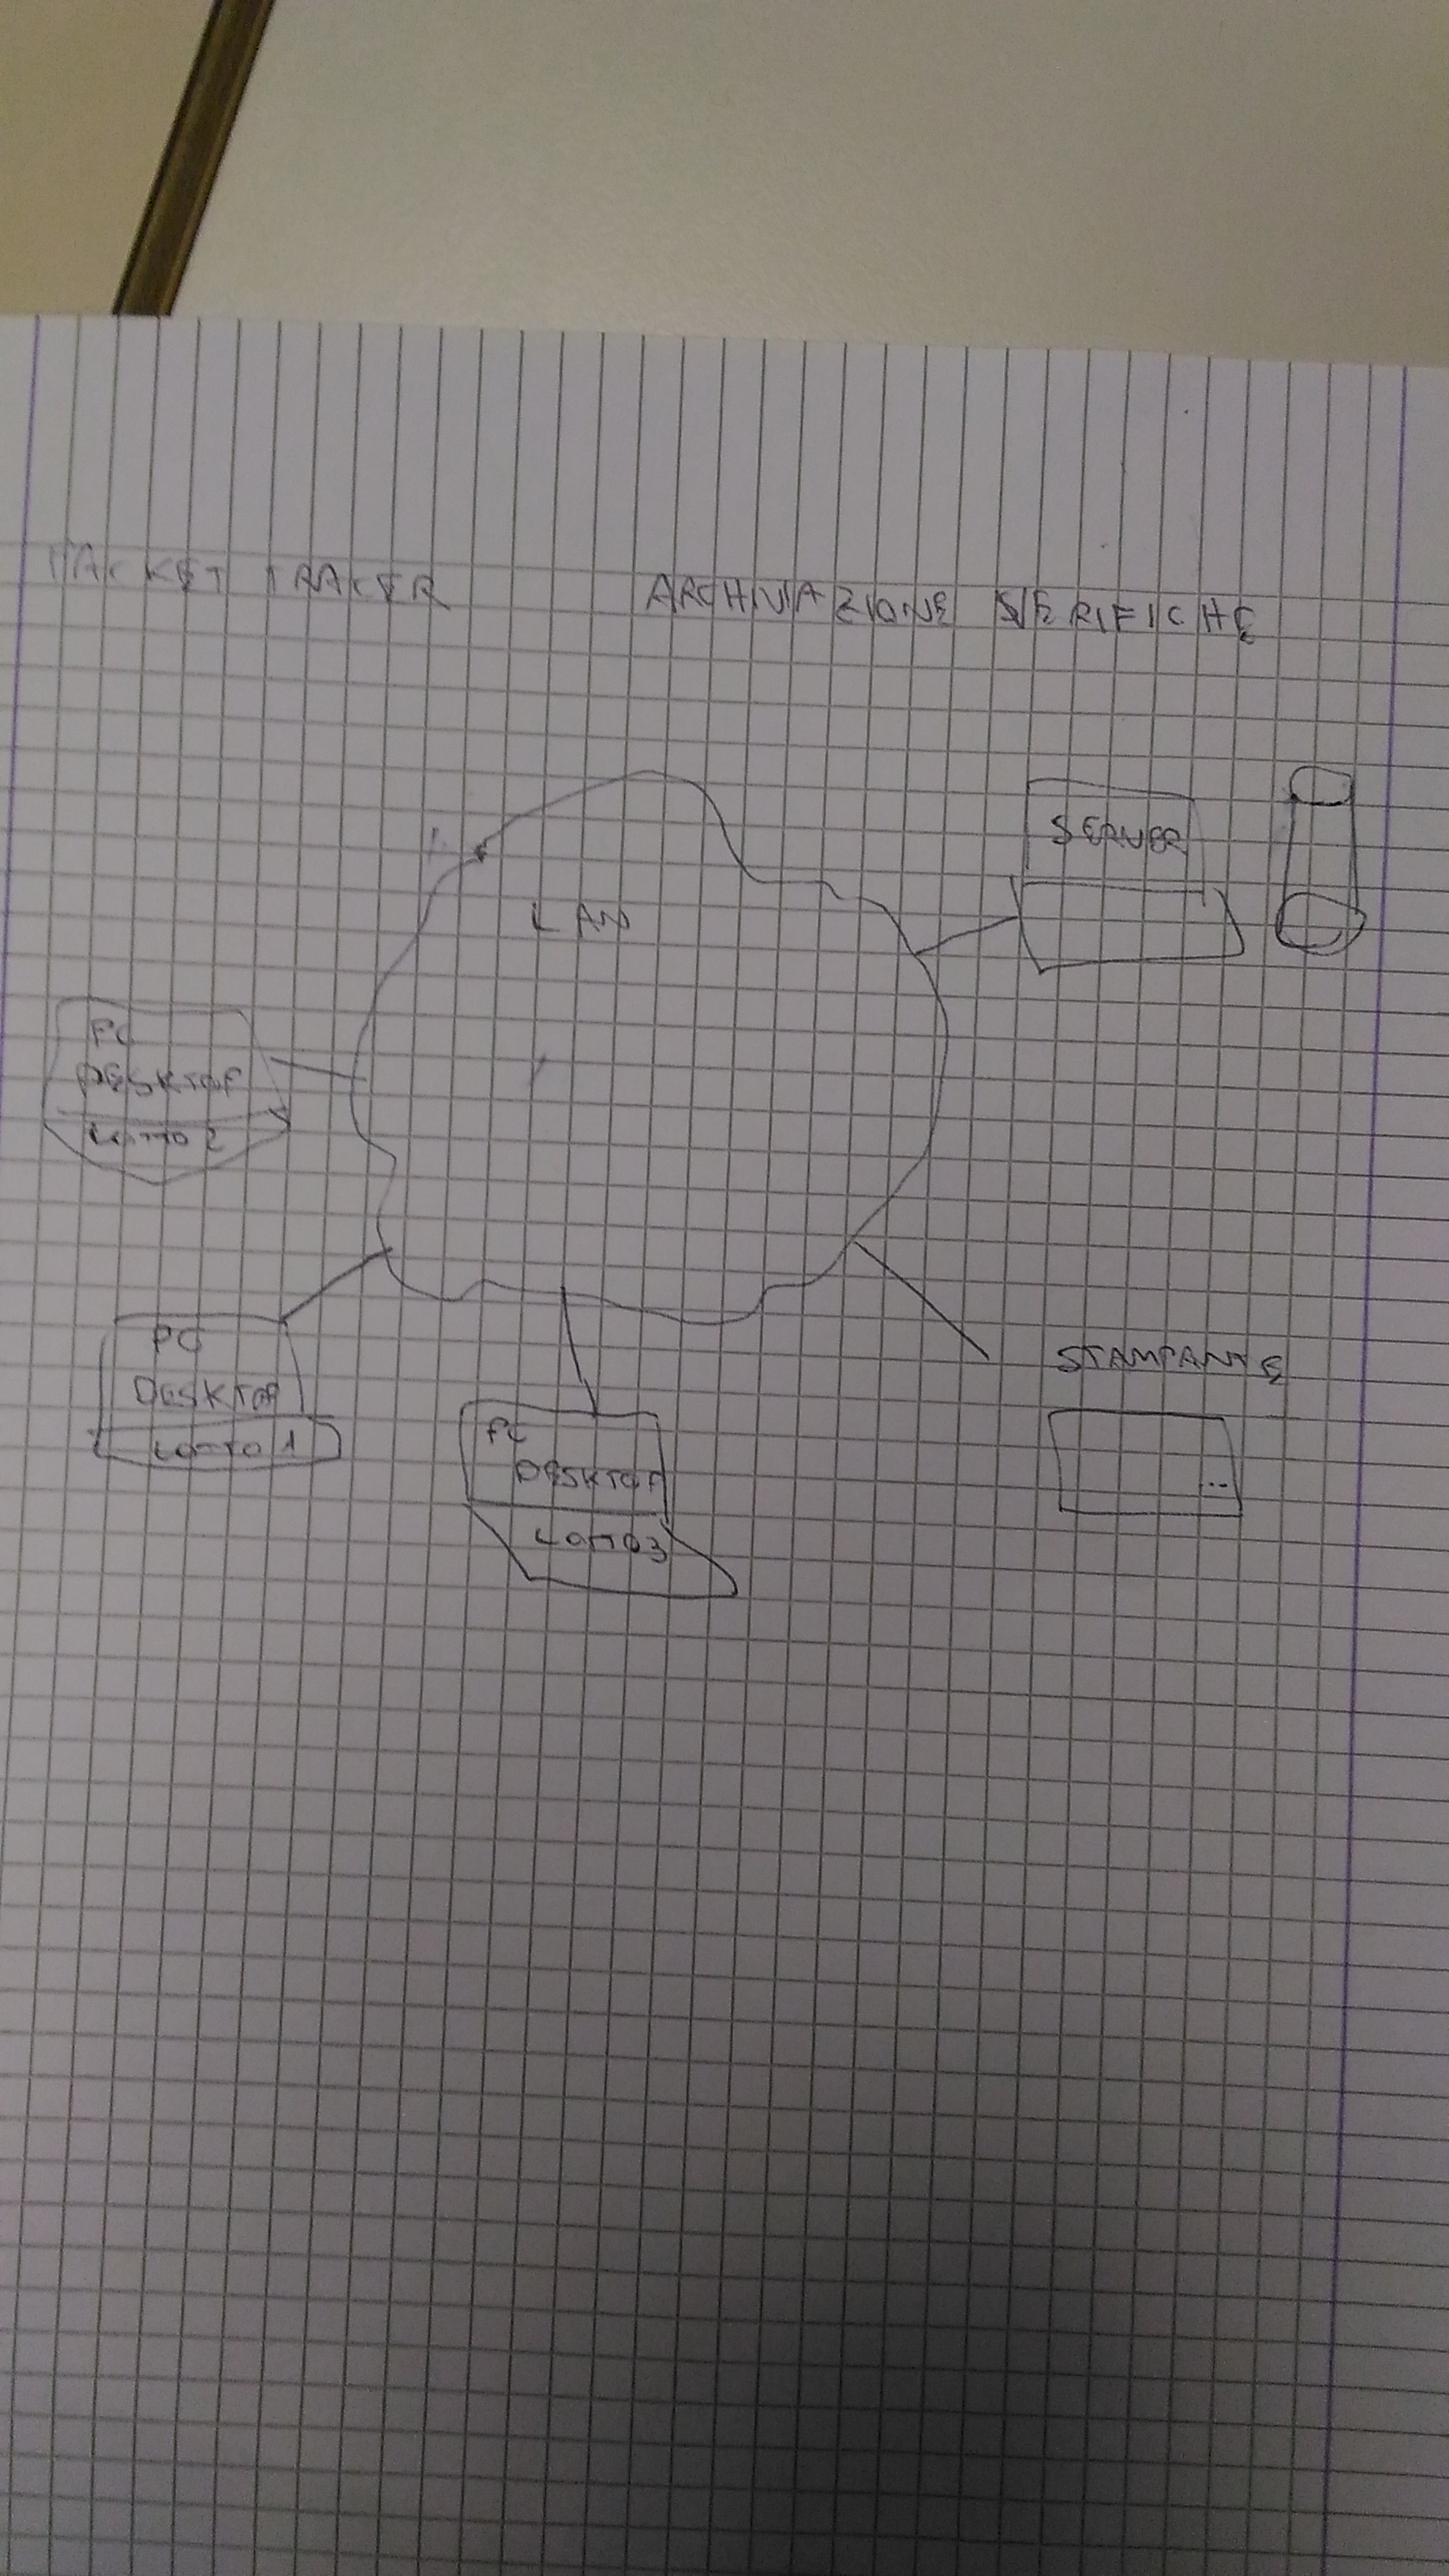 PACKET TRACER
ARCHIVIAZIONE VERIFICHE
SERVER
LAN
PC
DESKTOP
LOTTO 2
PC
DESKTOP
LOTTO 1
PC
DESKTOP
LOTTO 3
STAMPANTE
...